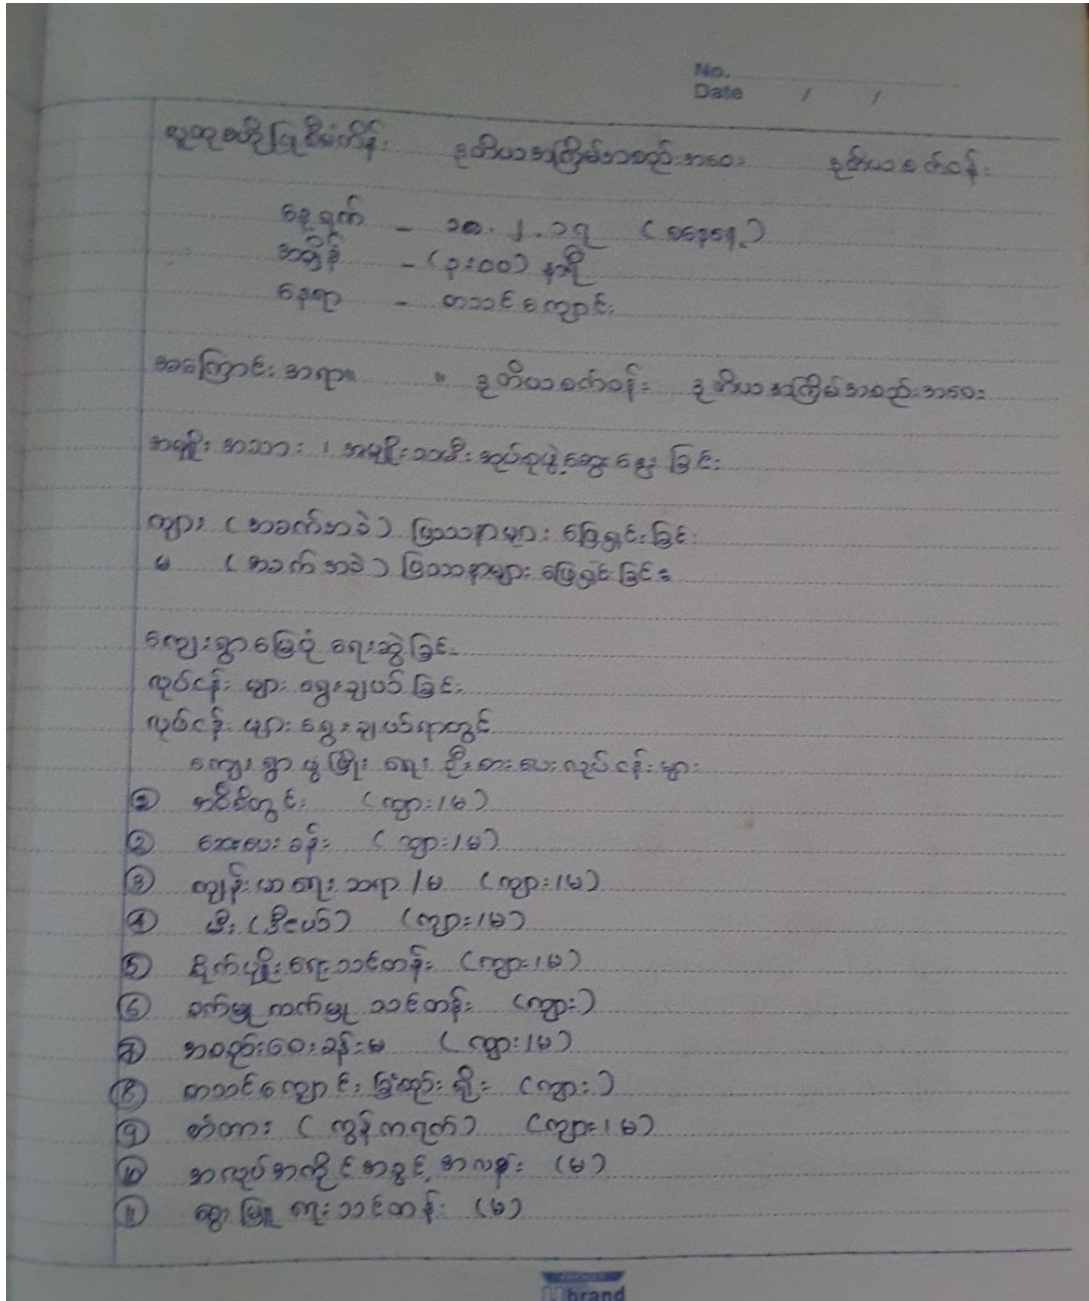 No.
Date / /
လူထုဗဟိုပြုစီမံကိန်း ဒုတိယအကြိမ်အစည်းအဝေး ဒုတိယစက်ဝန်း
နေ့ရက် - ၁၈.၂.၁၇ (စနေနေ့)
အချိန် - (၃:၀၀) နာရီ
နေရာ - စာသင်ကျောင်း
အကြောင်းအရာ။ ။ ဒုတိယစက်ဝန်း ဒုတိယအကြိမ်အစည်းအဝေး
အမျိုးသား၊ အမျိုးသမီးအုပ်စုဖွဲ့ဆွေးနွေးခြင်း
ကျား (အခက်အခဲ) ပြဿနာများ ဖြေရှင်းခြင်း
မ (အခက်အခဲ) ပြဿနာများ ဖြေရှင်းခြင်း
ကျေးရွာမြေပုံ ရေးဆွဲခြင်း
လုပ်ငန်းများ ရွေးချယ်ခြင်း
လုပ်ငန်းများ ရွေးချယ်ရာတွင်
ကျေးရွာဖွံ့ဖြိုးရေး ဦးစားပေးလုပ်ငန်းများ
① အဝီစိတွင်း (ကျား/မ)
② ဆေးပေးခန်း (ကျား/မ)
③ ကျန်းမာရေး ဆရာ/မ (ကျား/မ)
④ မီး (ဒီဇယ်) (ကျား/မ)
⑤ စိုက်ပျိုးရေးသင်တန်း (ကျား/မ)
⑥ စက်မှု လက်မှု သင်တန်း (ကျား)
⑦ အစည်းဝေးခန်းမ (ကျား/မ)
⑧ စာသင်ကျောင်း ခြံစည်းရိုး (ကျား)
⑨ တံတား (ကွန်ကရစ်) (ကျား/မ)
⑩ အလုပ်အကိုင်အခွင့်အလမ်း (မ)
⑪ မွေးမြူရေးသင်တန်း (မ)
brand